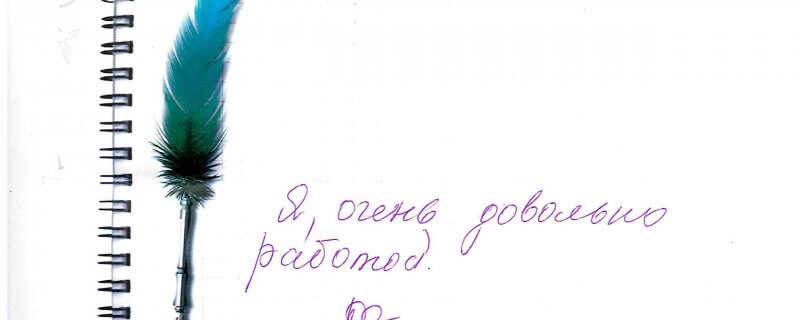 Я, очень довольно
работой.